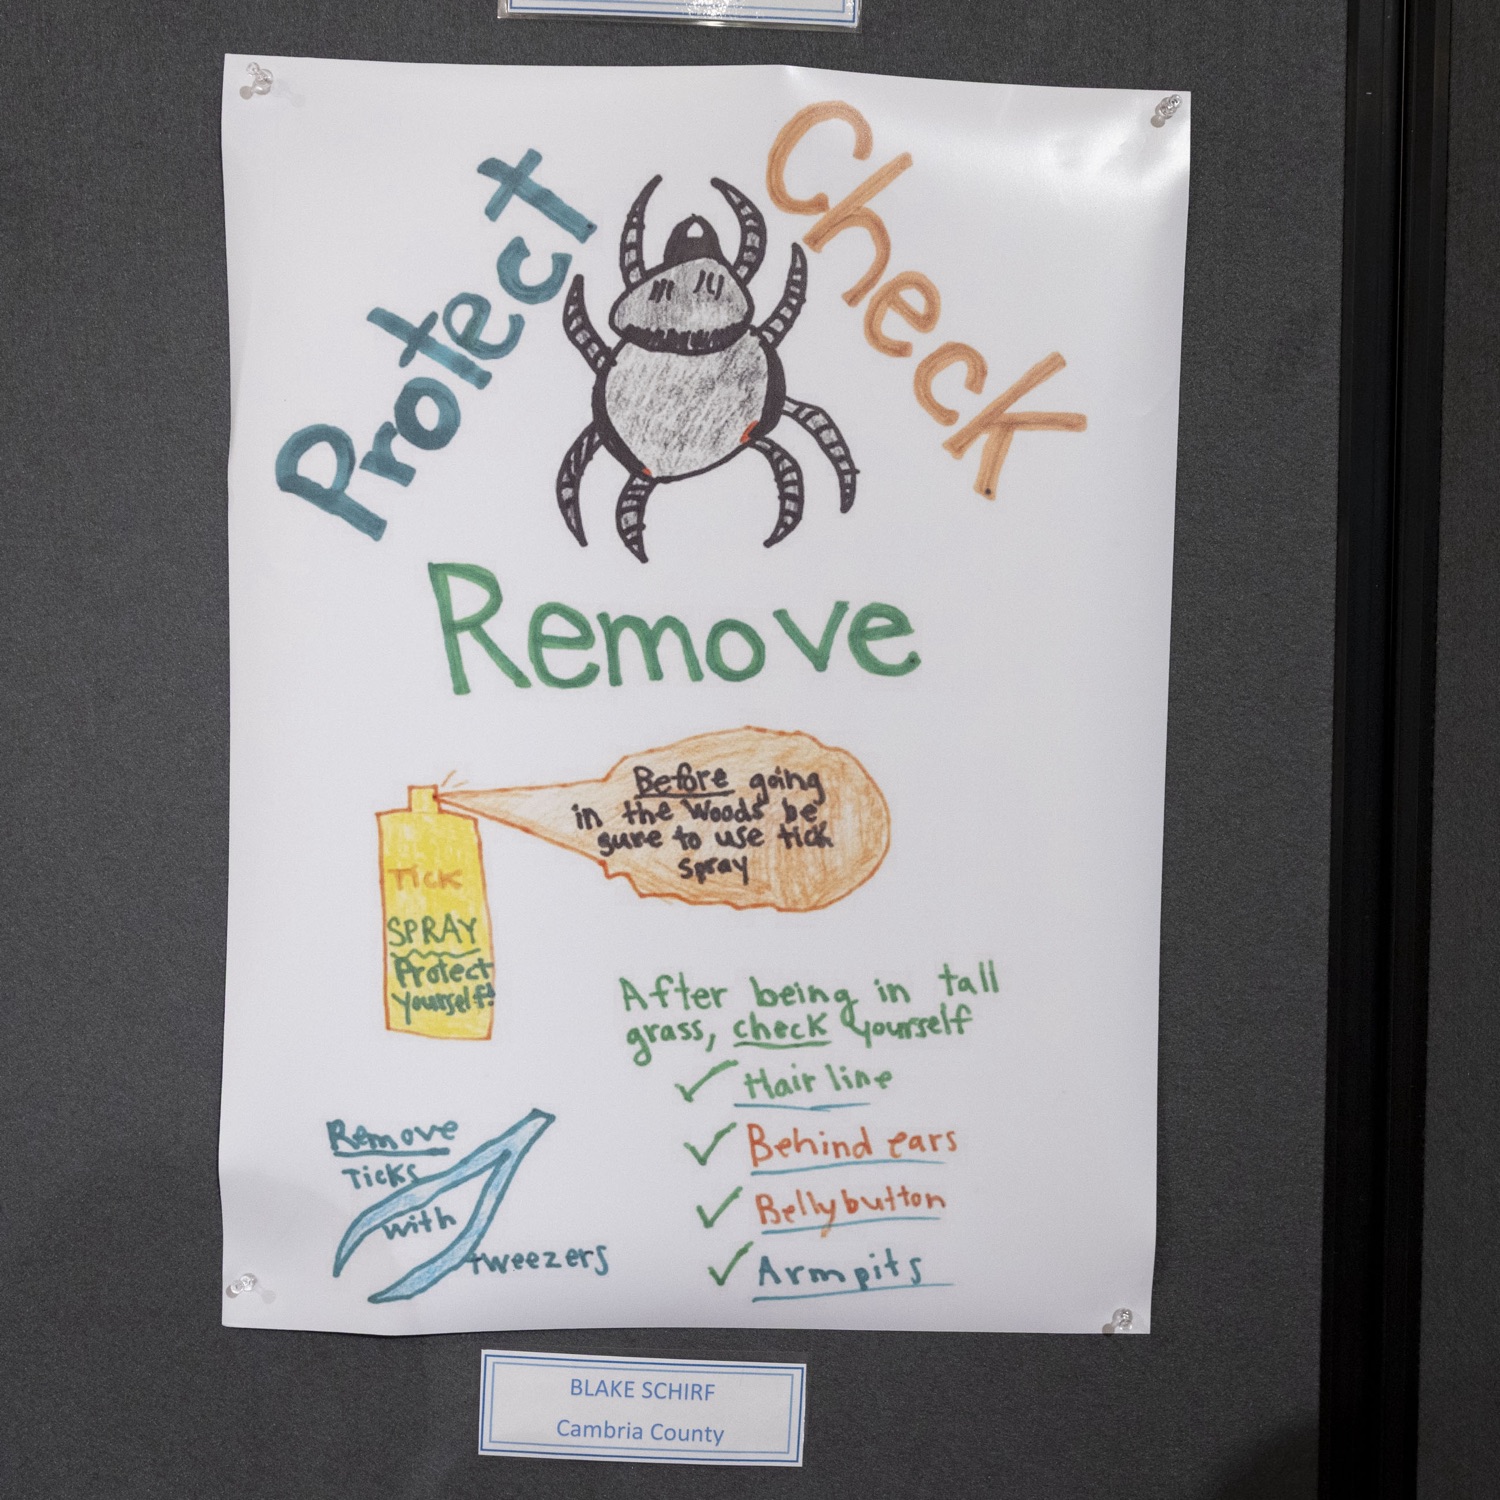 Protect
Check
Remove
Before going
in the woods be
sure to use tick
spray
TICK
SPRAY
Protect
yourself!
After being in tall
grass, check yourself
Hair line
Behind ears
Belly button
Armpits
Remove
Ticks
with
tweezers
BLAKE SCHIRF
Cambria County